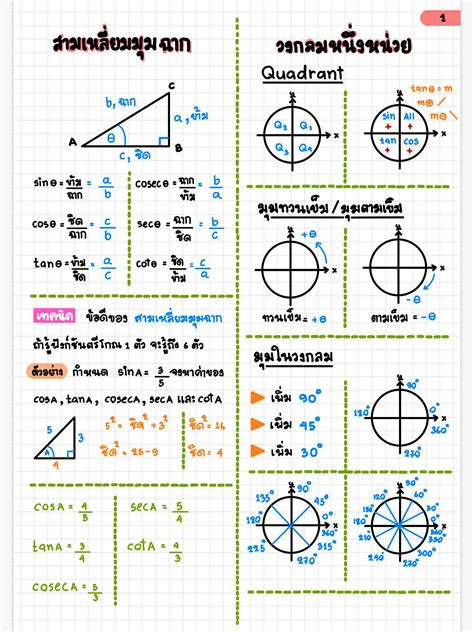 1
สามเหลี่ยมมุมฉาก
C
b, ฉาก
a, ข้าม
θ
A
B
c, ชิด
sinθ = ข้าม/ฉาก = a/b
cosecθ = ฉาก/ข้าม = b/a
cosθ = ชิด/ฉาก = c/b
secθ = ฉาก/ชิด = b/c
tanθ = ข้าม/ชิด = a/c
cotθ = ชิด/ข้าม = c/a
เทคนิค ข้อดีของ สามเหลี่ยมมุมฉาก
ถ้ารู้ฟังก์ชันตรีโกณ 1 ตัว จะรู้ถึง 6 ตัว
ตัวอย่าง กำหนด sinA = 3/5 จงหาค่าของ
cosA, tanA, cosecA, secA และ cotA
5
3
A
4
5² = ชิด² + 3²
ชิด² = 25 - 9
ชิด² = 16
ชิด = 4
cosA = 4/5
secA = 5/4
tanA = 3/4
cotA = 4/3
cosecA = 5/3
วงกลมหนึ่งหน่วย
Quadrant
Y
x
Q2 Q1
Q3 Q4
Y
x
sin All
+ +
tan cos
+ +
tanθ = m
m⊕ /
m⊖ \
มุมทวนเข็ม / มุมตามเข็ม
Y
x
+θ
ทวนเข็ม = +θ
Y
x
-θ
ตามเข็ม = -θ
มุมในวงกลม
เพิ่ม 90°
เพิ่ม 45°
เพิ่ม 30°
90°
180°
0°
360°
270°
90°
135°
45°
180°
0°
360°
225°
315°
270°
90°
120°
60°
150°
30°
180°
0°
360°
210°
330°
240°
300°
270°